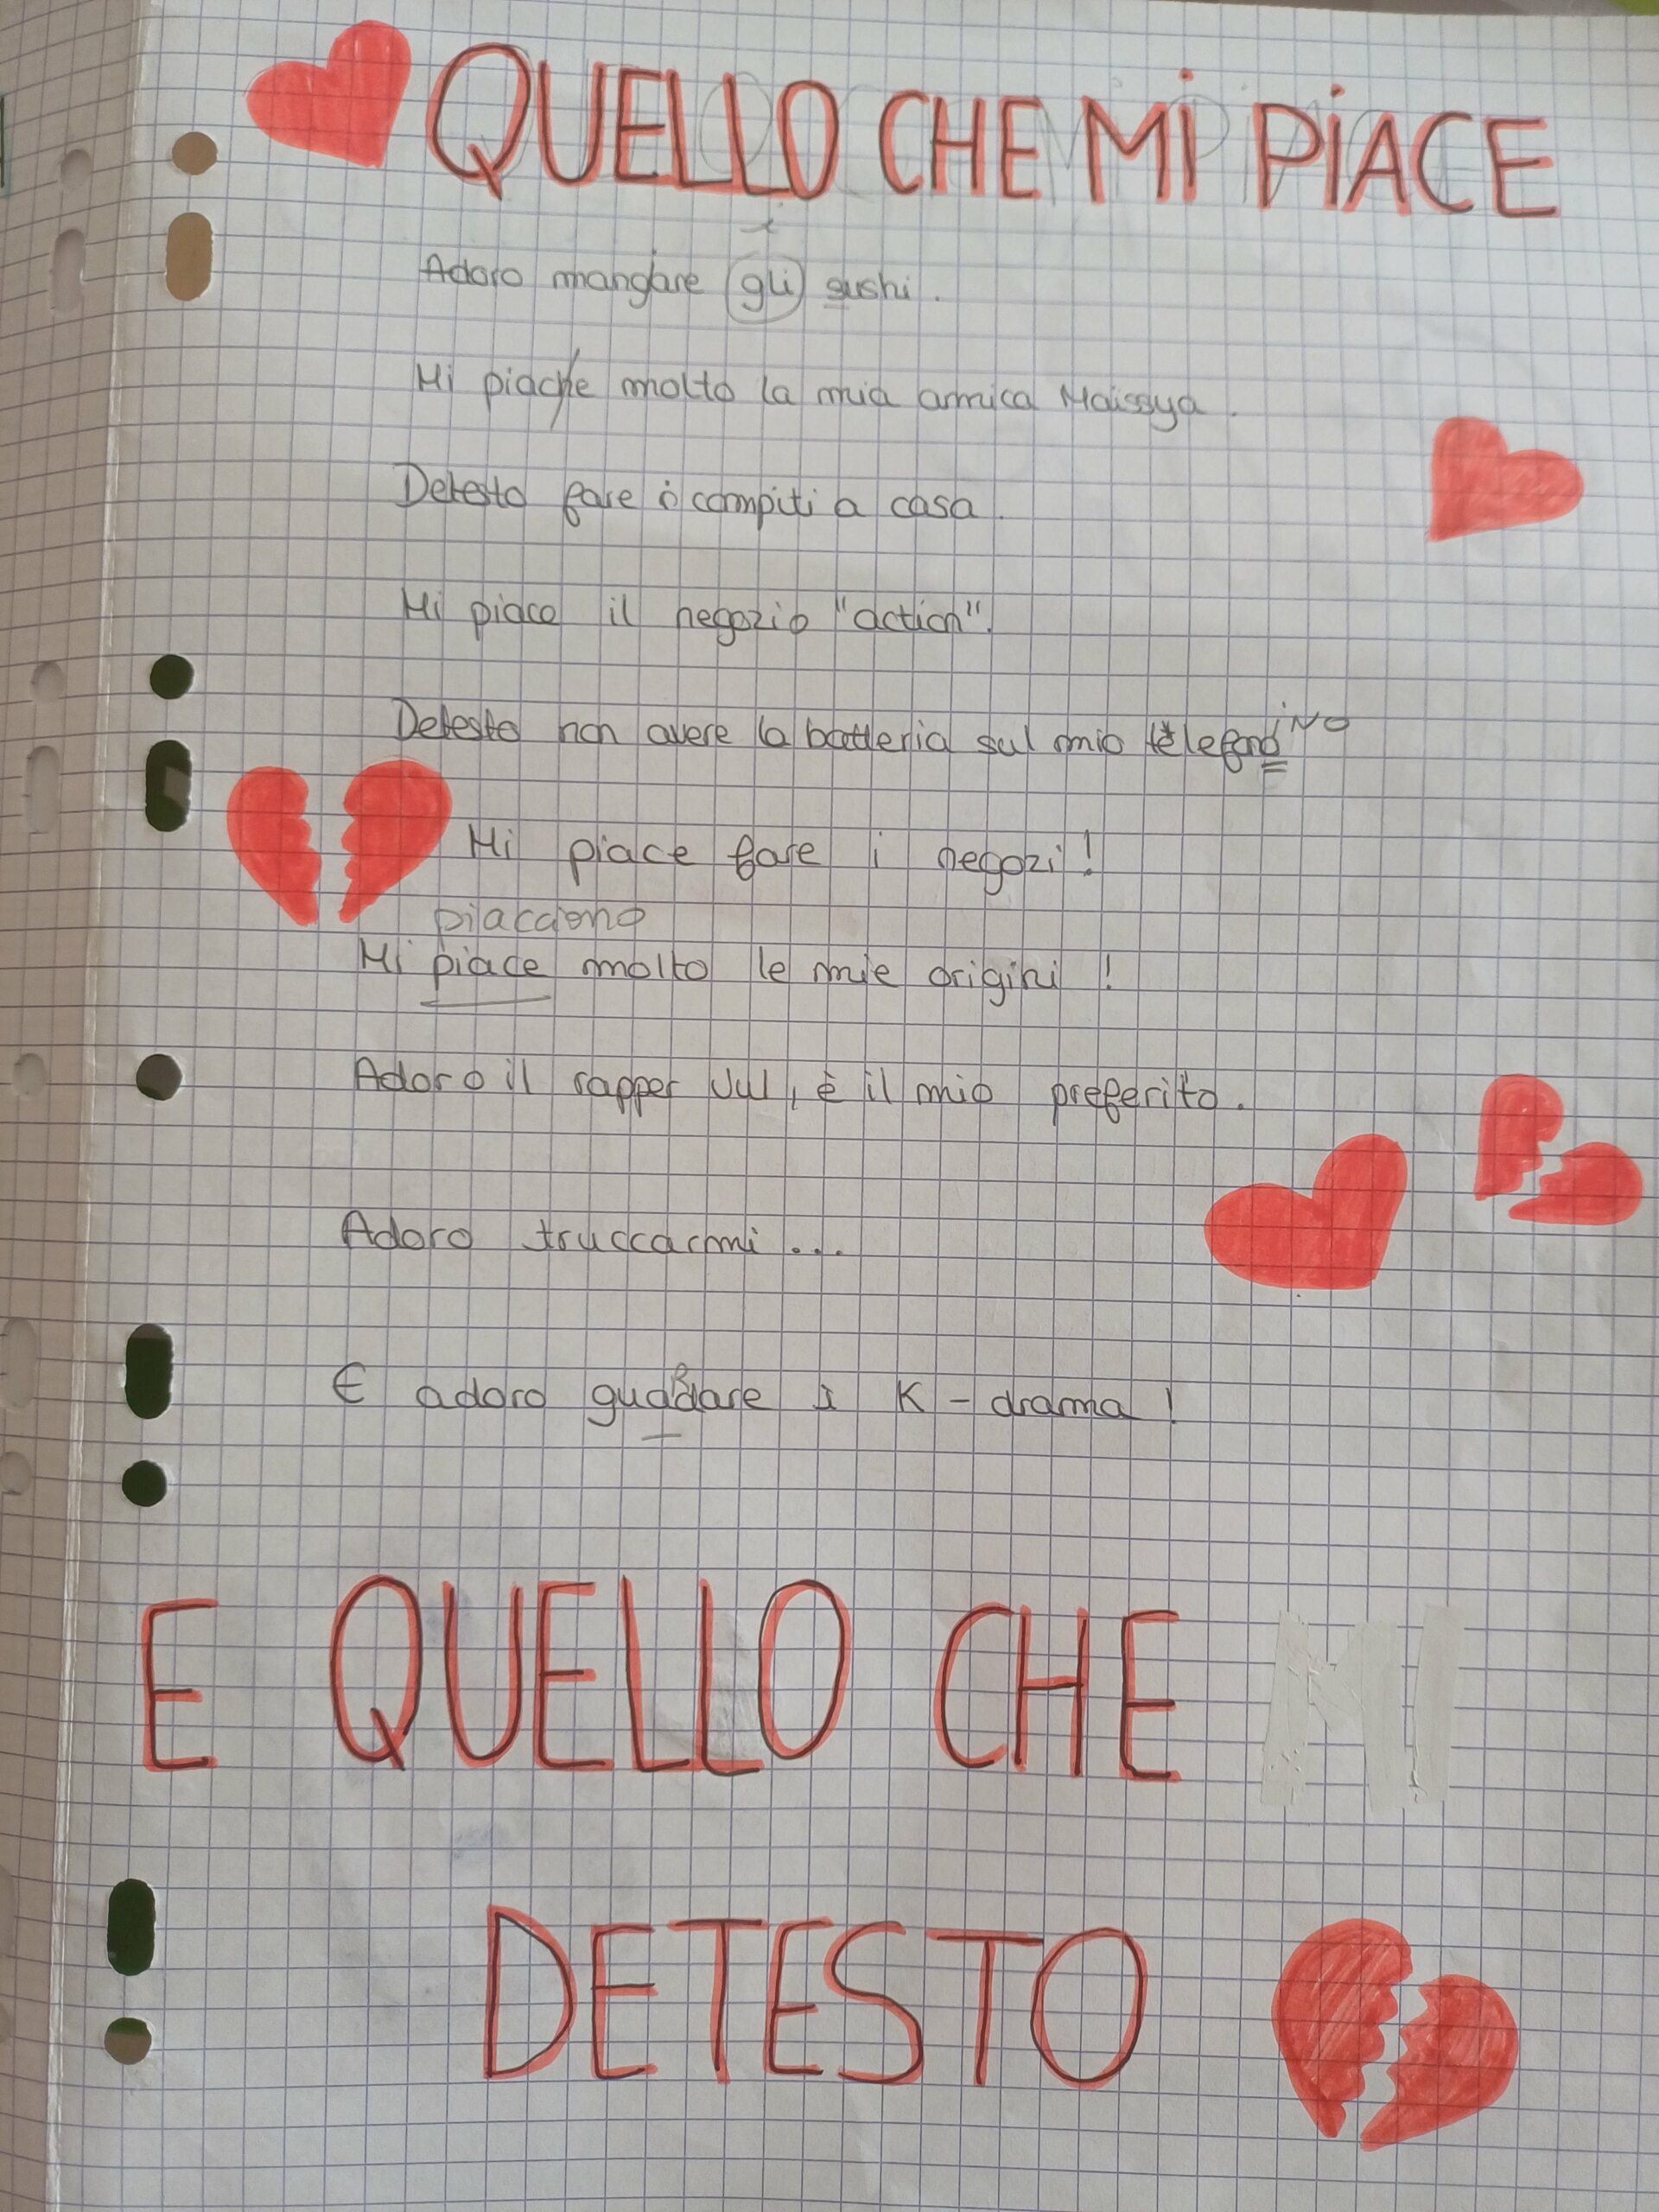 QUELLO CHE MI PIACE
i
Adoro mangiare gli sushi.
Mi piache molto la mia amica Maissya.
Detesto fare i compiti a casa.
Mi piace il negozio "action".
Detesto non avere la batteria sul mio telefono iNO
Mi piace fare i negozi !
piacciono
Mi piace molto le mie origini !
Adoro il rapper Jul, è il mio preferito.
Adoro truccarmi ...
E adoro guardare i K-drama !
E QUELLO CHE MI
DETESTO